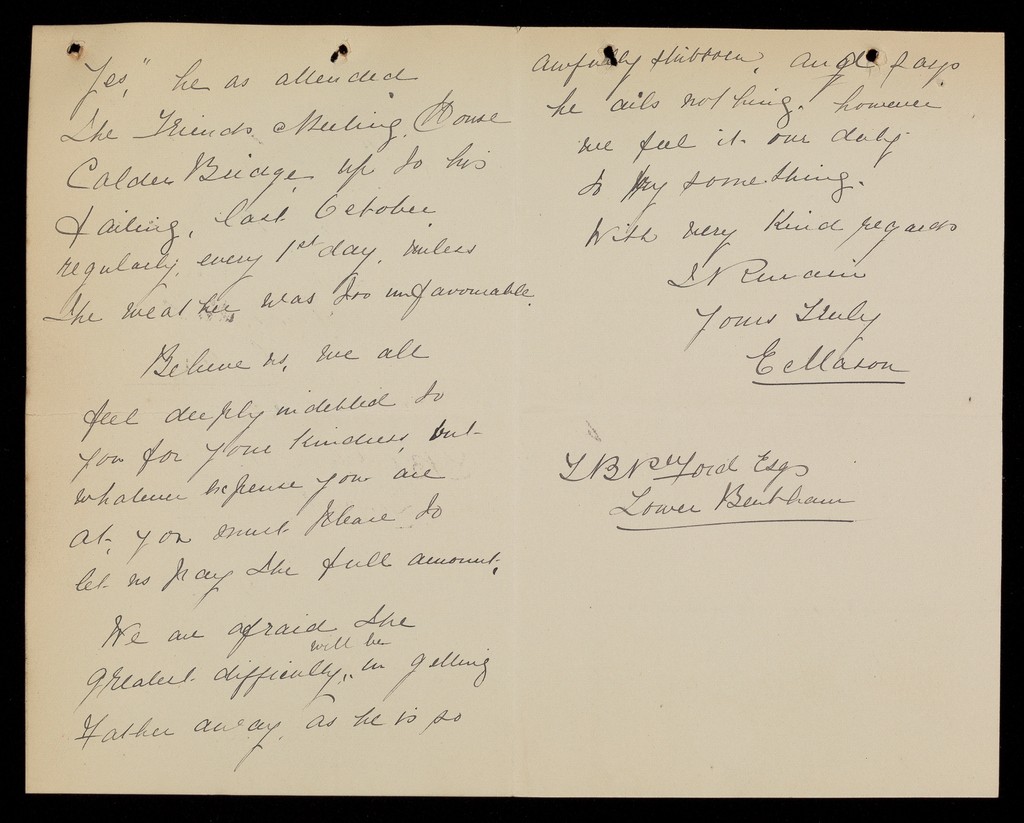 "Yes," he as attended
The Friends Meeting House
Calder Bridge, up to his
failing, last October
regularly, every 1st day, unless
the weather was too unfavourable.
Believe us, we all
feel deeply indebted to
you for your kindness, but
whatever expense you are
at, you must please to
let us pay the full amount.
We are afraid the
greatest difficulty, will be in getting
Father away, as he is so
awfully stubborn, and says
he ails nothing. however
we feel it our duty
to try something.
With very kind regards
I Remain
Yours Truly
E Mason
Ford Esqr
Lower Bentham